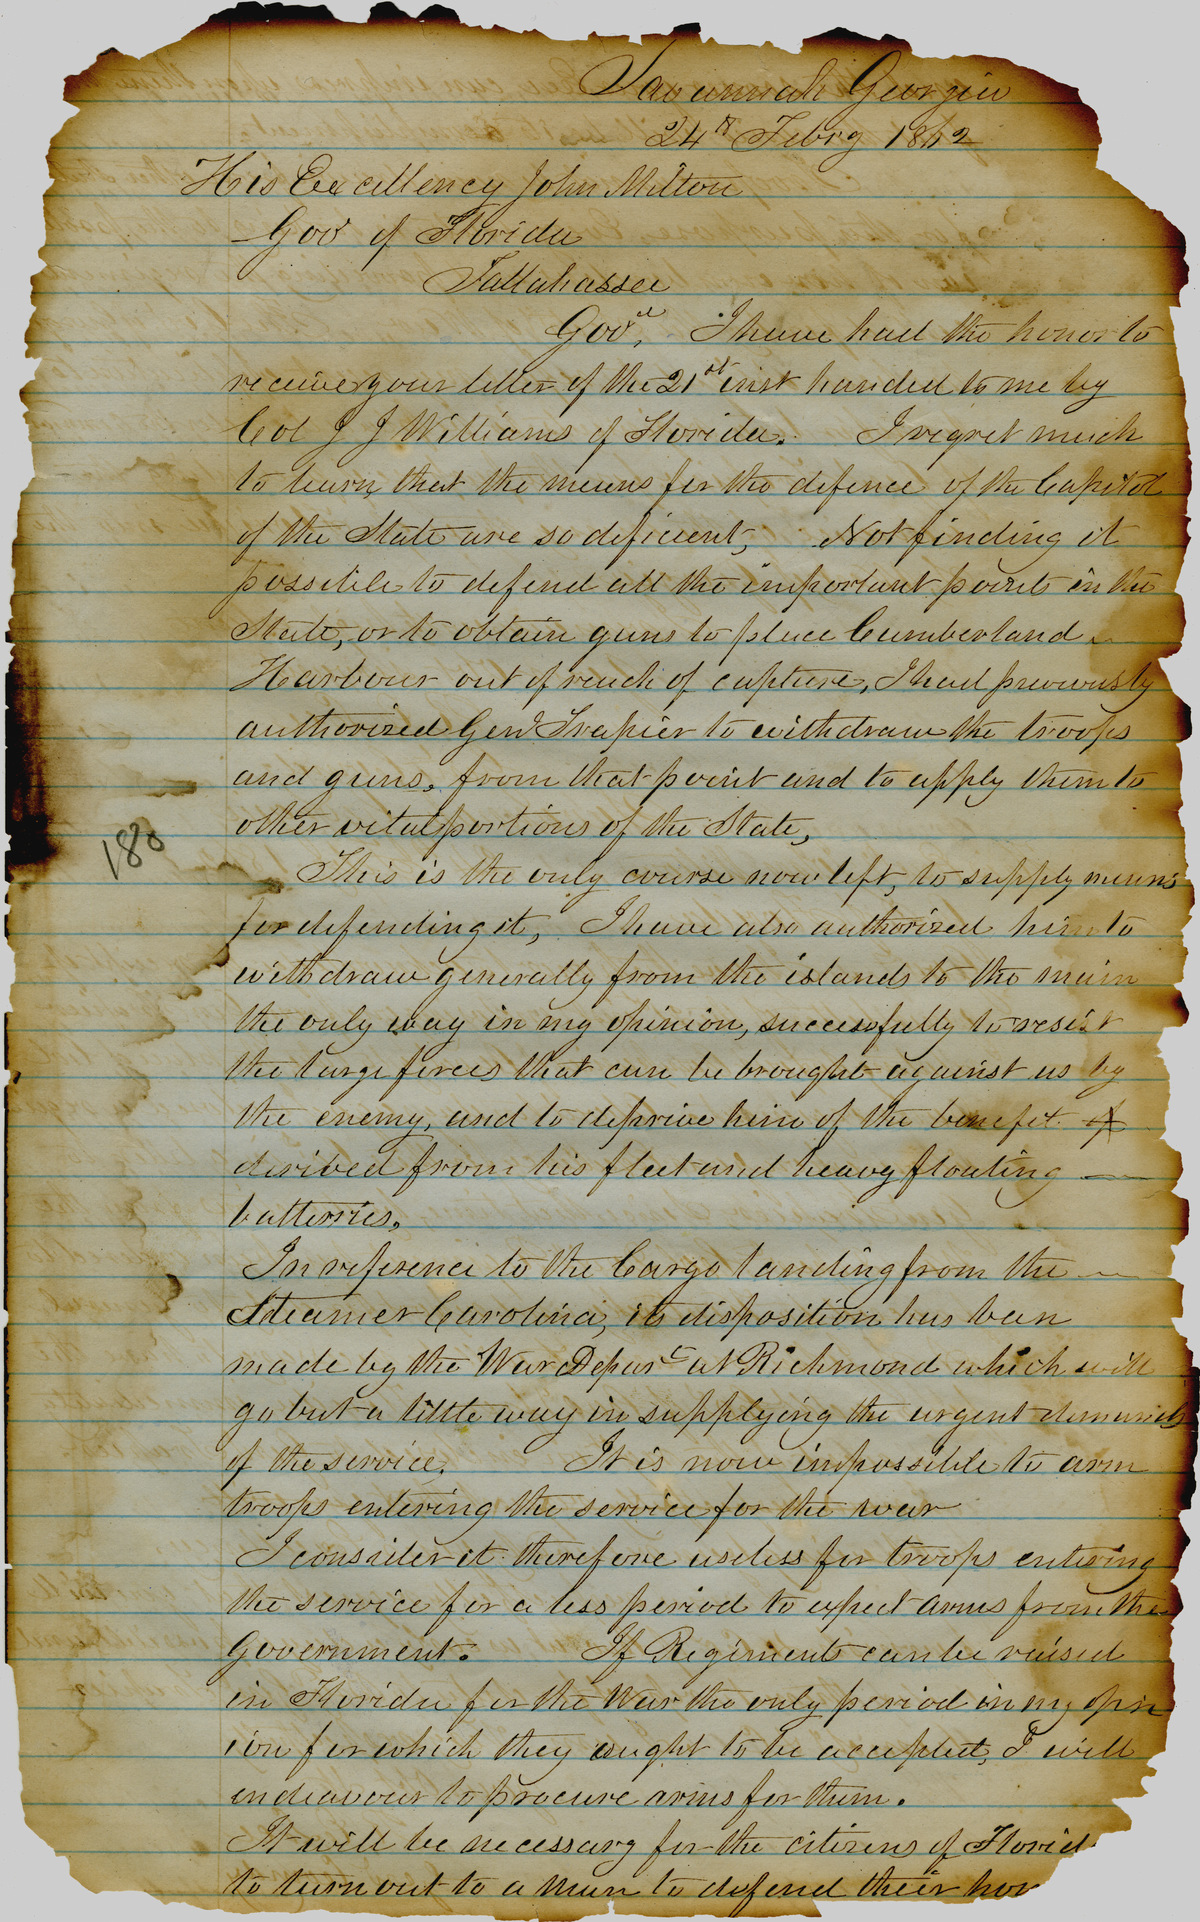 Savannah Georgia
24th Febry 1862
His Excellency John Milton
Gov of Florida
Tallahassee
Gov, I have had the honor to
receive your letter of the 21st inst handed to me by
Col J J Williams of Florida. I regret much
to learn that the means for the defence of the Capitol
of the State are so deficient, Not finding it
possible to defend all the important points in the
State, or to obtain guns to place Cumberland
Harbour out of reach of capture, I had previously
authorized Genl Trapier to withdraw the troops
and guns, from that point and to apply them to
other vital portions of the State,
180
This is the only course now left, to supply means
for defending it, I have also authorized him to
withdraw generally from the islands to the main
the only way in my opinion, successfully to resist
the large forces that can be brought against us by
the enemy, and to deprive him of the benefit of
derived from his fleet and heavy floating
batteries.
In reference to the Cargo landing from the
Steamer Carolina, its disposition has been
made by the War Depart at Richmond which will
go but a little way in supplying the urgent demands
of the service. It is now impossible to arm
troops entering the service for the war
I consider it therefore useless for troops entering
the service for a less period to expect arms from the
Government. If Regiments can be raised
in Florida for the War the only period in my opin
ion for which they ought to be accepted, I will
endeavour to procure arms for them.
It will be necessary for the citizens of Florid
to turn out to a man to defend their hom